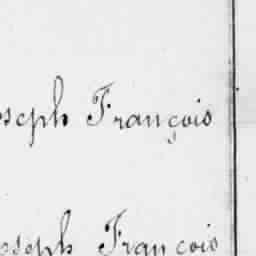 oseph François
oseph François